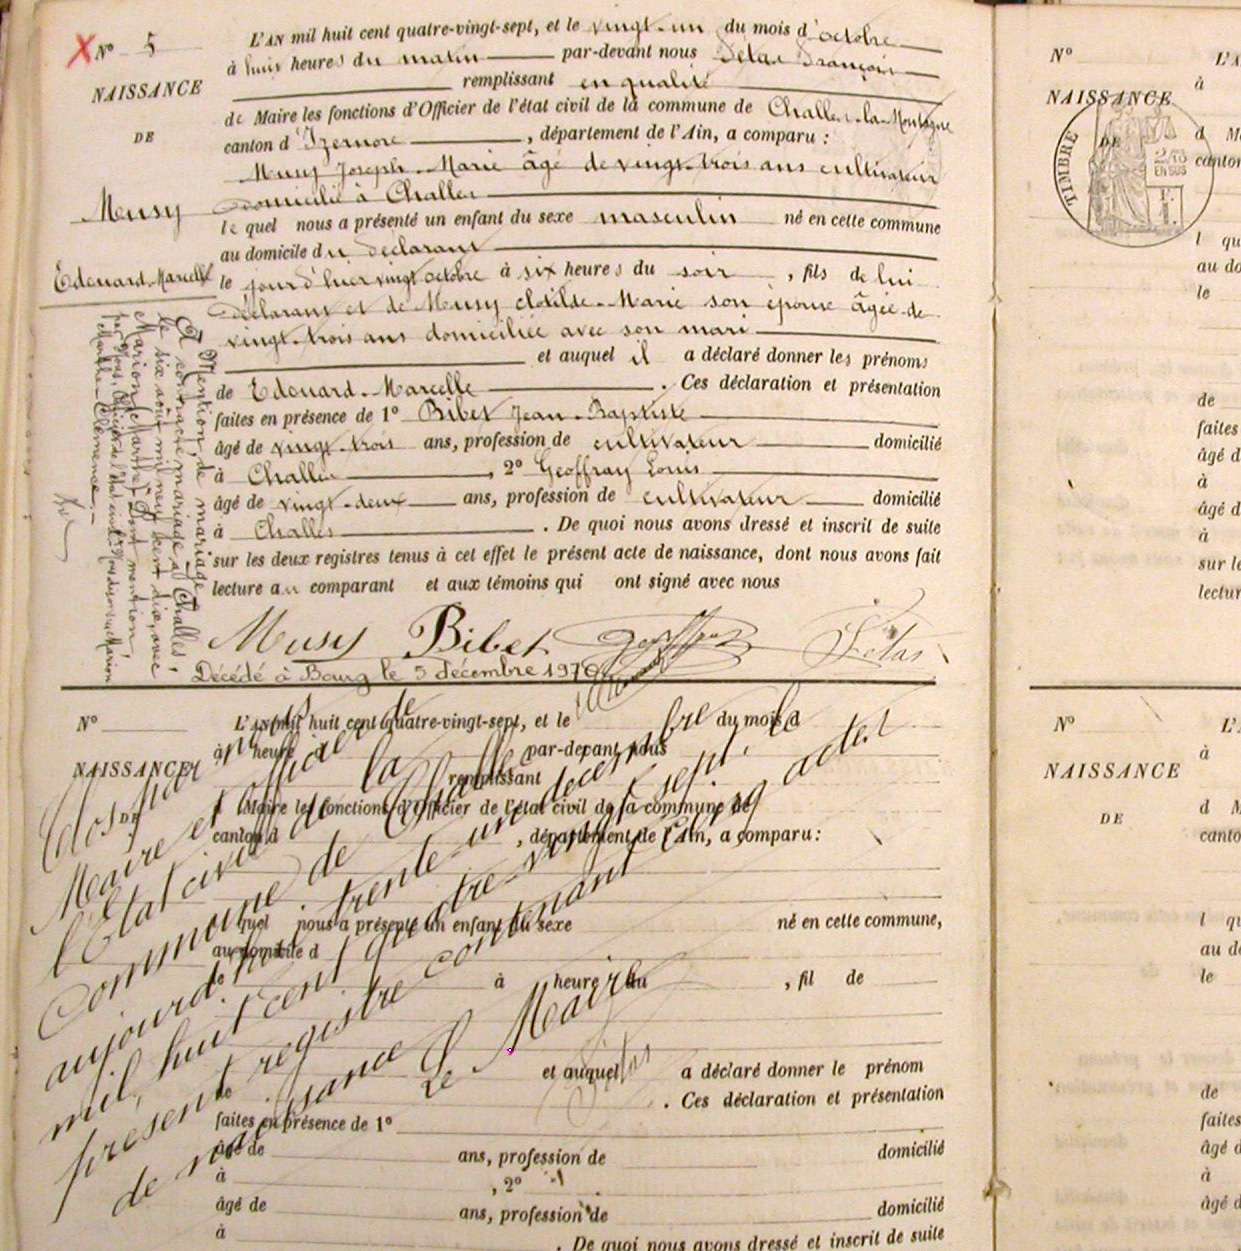 X N° 5
NAISSANCE
DE
Musy
Edouard-Marcelle
L'AN mil huit cent quatre-vingt-sept, et le vingt-un du mois d'octobre
à huit heures du matin par-devant nous Létas François
remplissant en qualité
de Maire les fonctions d'Officier de l'état civil de la commune de Challes-la-Montagne
canton d'Izernore, département de l'Ain, a comparu :
Musy Joseph-Marie âgé de vingt-trois ans cultivateur
domicilié à Challes
lequel nous a présenté un enfant du sexe masculin né en cette commune
au domicile du déclarant
le jour d'hier vingt octobre à six heures du soir, fils de lui
déclarant et de Musy Clotilde-Marie son épouse âgée de
vingt-trois ans domiciliée avec son mari
et auquel il a déclaré donner les prénoms
de Edouard-Marcelle. Ces déclaration et présentation
faites en présence de 1° Bibet Jean-Baptiste
âgé de vingt-trois ans, profession de cultivateur domicilié
à Challes, 2° Geoffray Louis
âgé de vingt-deux ans, profession de cultivateur domicilié
à Challes. De quoi nous avons dressé et inscrit de suite
sur les deux registres tenus à cet effet le présent acte de naissance, dont nous avons fait
lecture au comparant et aux témoins qui ont signé avec nous
Musy Bibet Geoffray Létas
Décédé à Bourg le 5 décembre 1970
Mention de mariage
A contracté mariage à Challes,
le six août mil neuf cent dix, avec
Marion Marthe. Dont mention
par Nous, Officier de l'état civil
Marthe-Clémence.-
N°
NAISSANCE
DE
L'AN mil huit cent quatre-vingt-sept, et le du mois d
à heure d par-devant nous
remplissant
Maire les fonctions d'Officier de l'état civil de la commune de
canton d , département de l'Ain, a comparu :
quel nous a présenté un enfant du sexe né en cette commune,
au domicile d
le à heure du , fil de
et auquel a déclaré donner le prénom
de . Ces déclaration et présentation
faites en présence de 1°
âgé de ans, profession de domicilié
à , 2°
âgé de ans, profession de domicilié
à . De quoi nous avons dressé et inscrit de suite
Clos par nous
Maire et officier de
l'Etat civil de la
Commune de Challes
aujourd'hui trente-un décembre, le
mil huit cent quatre-vingt sept,
présent registre contenant cinq actes
de naissance
Le Maire
Létas
N°
NAISSANCE
DE
TIMBRE
2/10
EN SUS
L'A
à
d M
canton
l qu
au do
le
de
faites
âgé d
à
âgé d
à
sur le
lectur
N°
NAISSANCE
DE
L'A
à
d M
canto
l qu
au do
le
de
faites
âgé d
à
âgé d